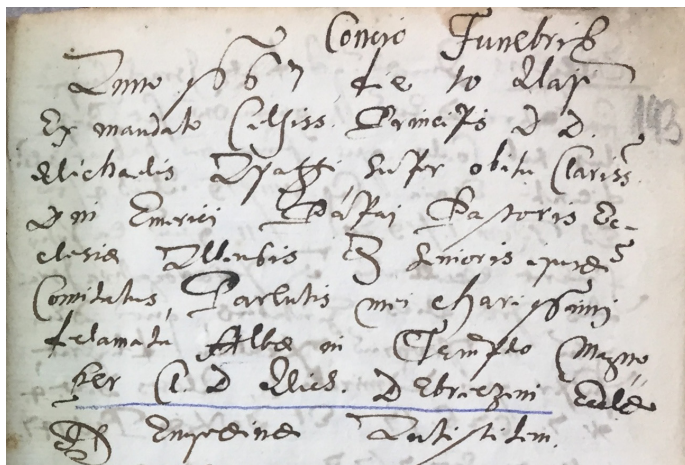 Concio Funebris
Anno 1667 die 10 Maji
Ex mandato Celsiss. Principis D D.
Michaelis Apaffi, super obitu Clariss.
Dni Emerici Pápai Pastoris Ec-
clesiæ Albensis & Senioris
Comitatus, Parentis mei charissimi
declamata Albæ in Templo Magno
per C. D. Mich. Debreczeni Eccle
Enyedine Antistitem.
193